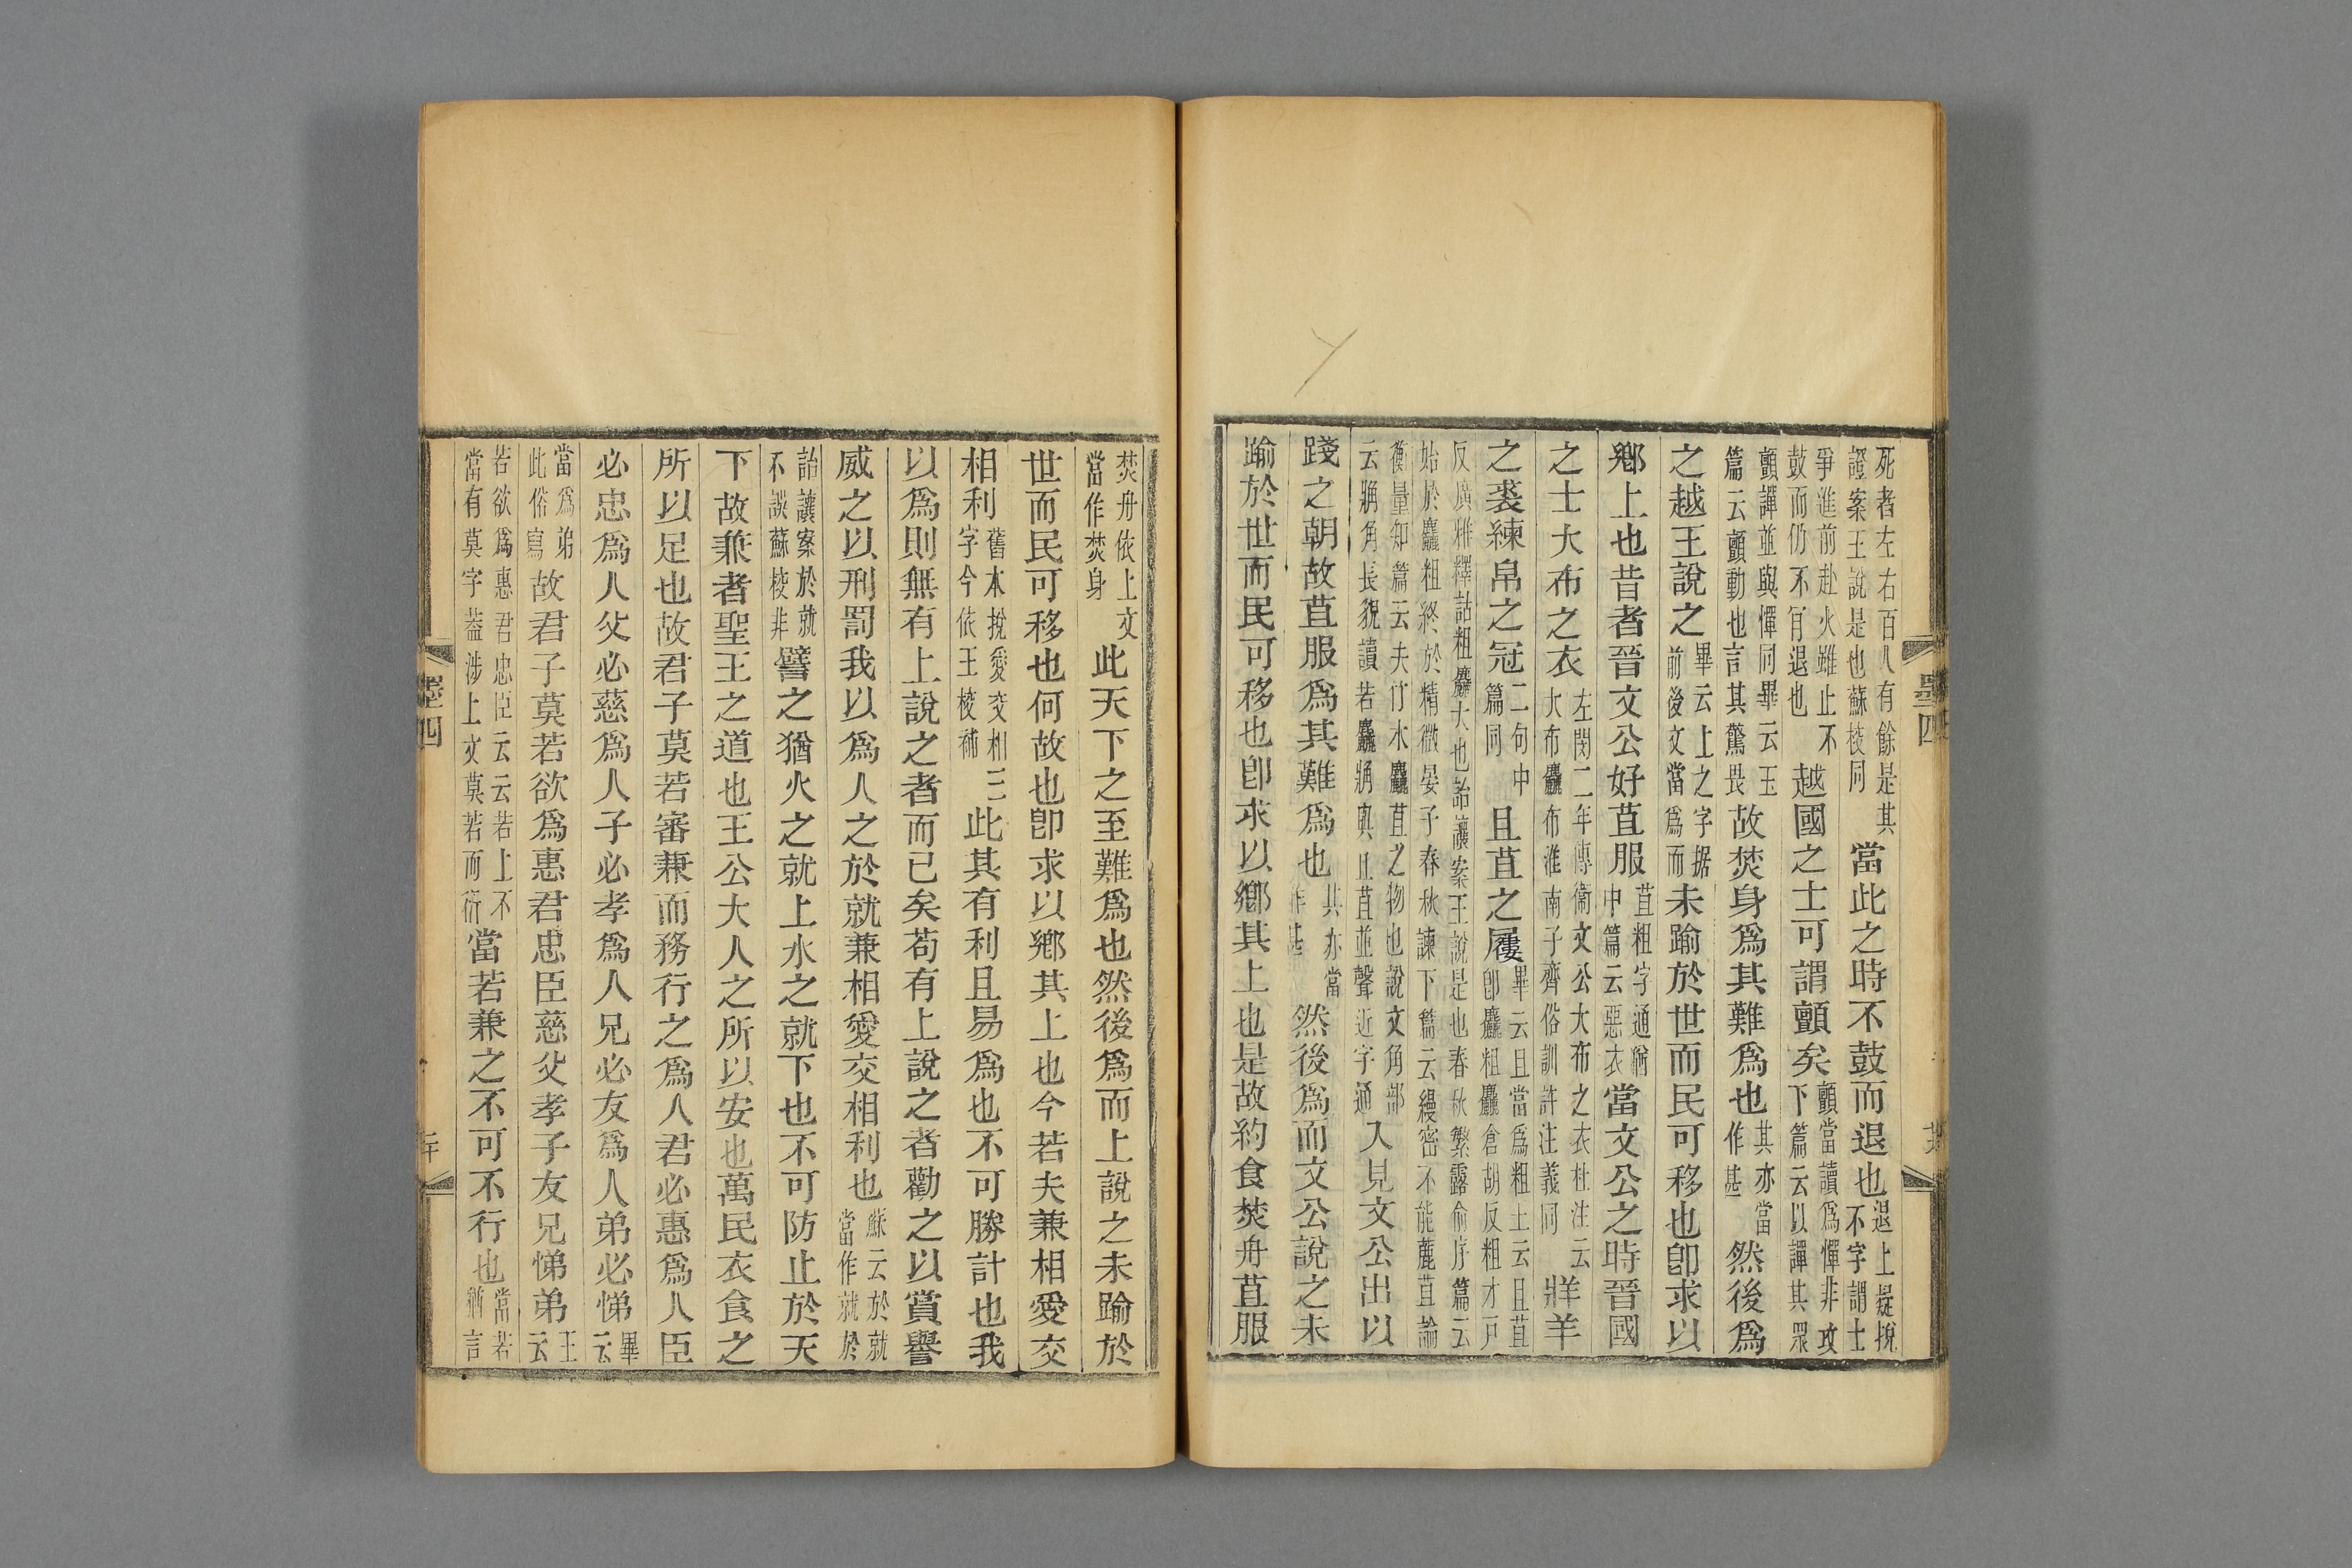 死者左右百人有餘是其
證案王說是也蘇校同
當此之時不鼓而退也
退上疑挩
不字謂士
爭進前赴火雖止不
鼓而仍不肎退也
越國之士可謂顫矣
顫當讀爲憚非攻
下篇云以譂其眾
顫譂並與憚同畢云玉
篇云顫動也言其驚畏
故焚身爲其難爲也
其亦當
作甚
然後爲
之越王說之
畢云上之字据
前後文當爲而
未踰於世而民可移也卽求以
鄉上也昔者晉文公好苴服
苴粗字通猶
中篇云惡衣
當文公之時晉國
之士大布之衣
左閔二年傳衞文公大布之衣杜注云
大布麤布淮南子齊俗訓許注義同
牂羊
之裘練帛之冠
二句中
篇同
且苴之屨
畢云且當爲粗土云且苴
卽麤粗麤倉胡反粗才戶
反廣雅釋詁粗麤大也詒讓案王說是也春秋繁露俞序篇云
始於麤粗終於精微晏子春秋諫下篇云縵密不能麄苴論
衡量知篇云夫竹木麤苴之物也說文角部
云觕角長貌讀若麤觕與且苴並聲近字通
入見文公出以
踐之朝故苴服爲其難爲也
其亦當
作甚
然後爲而文公說之未
踰於世而民可移也卽求以鄉其上也是故約食焚舟苴服
焚舟依上文
當作焚身
此天下之至難爲也然後爲而上說之未踰於
世而民可移也何故也卽求以鄉其上也今若夫兼相愛交
相利
舊本挩愛交相三
字今依王校補
此其有利且易爲也不可勝計也我
以爲則無有上說之者而已矣苟有上說之者勸之以賞譽
威之以刑罰我以爲人之於就兼相愛交相利也
蘇云於就
當作就於
詒讓案於就
不誤蘇校非
譬之猶火之就上水之就下也不可防止於天
下故兼者聖王之道也王公大人之所以安也萬民衣食之
所以足也故君子莫若審兼而務行之爲人君必惠爲人臣
必忠爲人父必慈爲人子必孝爲人兄必友爲人弟必悌
畢云
當爲弟
此俗寫
故君子莫若欲爲惠君忠臣慈父孝子友兄悌弟
王云
若欲爲惠君忠臣云云若上不
當有莫字葢涉上文莫若而衍
當若兼之不可不行也
當若
猶言